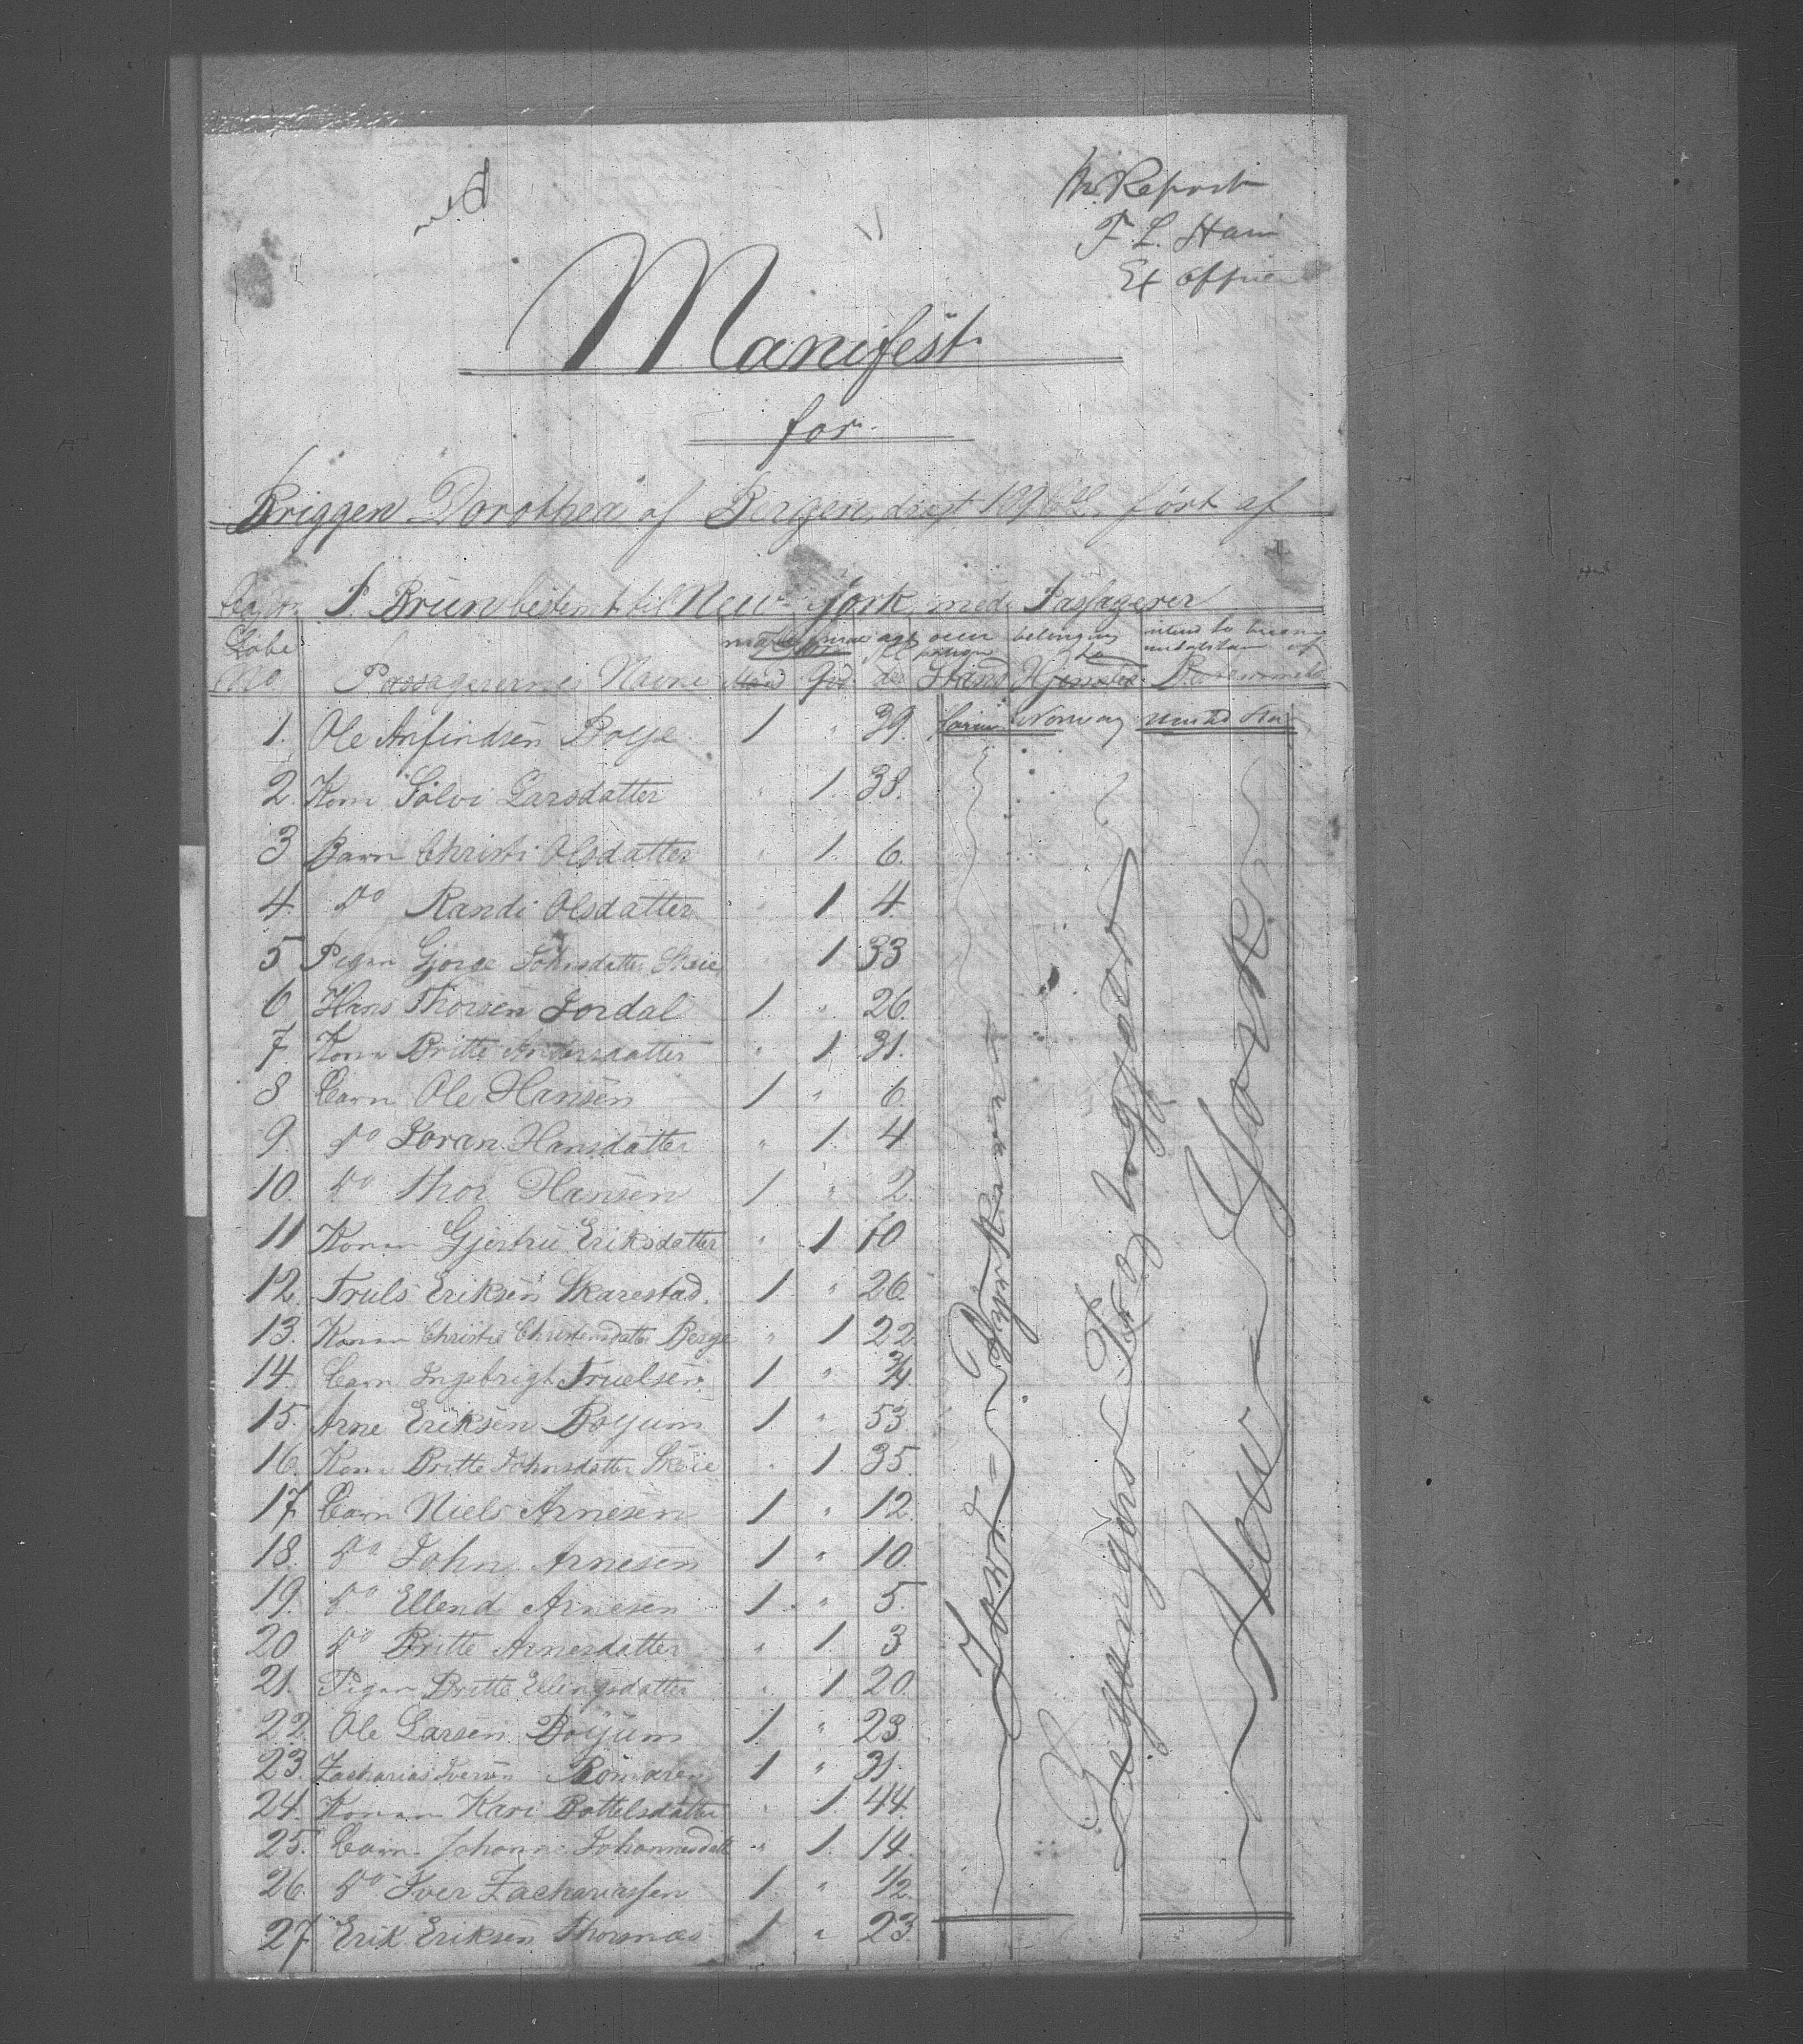 Report
F. L.
Manifest
for
Briggen Dorothea af Bergen, ført af
P. Brun bestemt til New York med Passagerer
male age belonging to intend to
Løbe No. Passagerernes Navne Stand Hjemsted
1. Ole Anfindsen Bøye 1 " 39. Norway United
2. Kone Sølvi Larsdatter " 1. 38.
3 Barn Christi Olsdatter " 1. 6.
4. Do Randi Olsdatter " 1 4.
5 Pigen Gjørge Johnsdatter Skeie " 1 33
6 Hans Thorsen Jordal 1 " 26.
7 Kone Britte Andersdatter " 1 31.
8 Barn Ole Hansen 1 " 6
9. Do Joran Hansdatter " 1. 4
10. Do Thor Hansen 1 " 2.
11 Konen Gjertru Eriksdatter " 1 70
12. Truls Eriksen Skarestad. 1 " 26.
13. Konen Christie Christensdatter Berge " 1 22
14. Barn Ingebrigt Truelsen. 1 " 3/4
15. Arne Eriksen Bøyum 1 " 53
16. Kone Britte Johnsdatter Skeie " 1. 35.
17 Barn Niels Arnesen 1 " 12.
18. Do John Arnesen 1 " 10.
19. Do Ellend Arnesen 1 " 5.
20 Do Britte Arnesdatter " 1. 3
21. Pigen Britte Ellingsdatter " 1 20.
22 Ole Larsen Bøyum 1 " 23.
23. Zacharias Iversen 1 " 31.
24. Konen Kari Bottelsdatter " 1. 44.
25. Barn Johanne Johannesdatt " 1. 14.
26. Do Iver Zachariassen 1. " 1/2.
27 Erik Eriksen 1 " 23.
New York